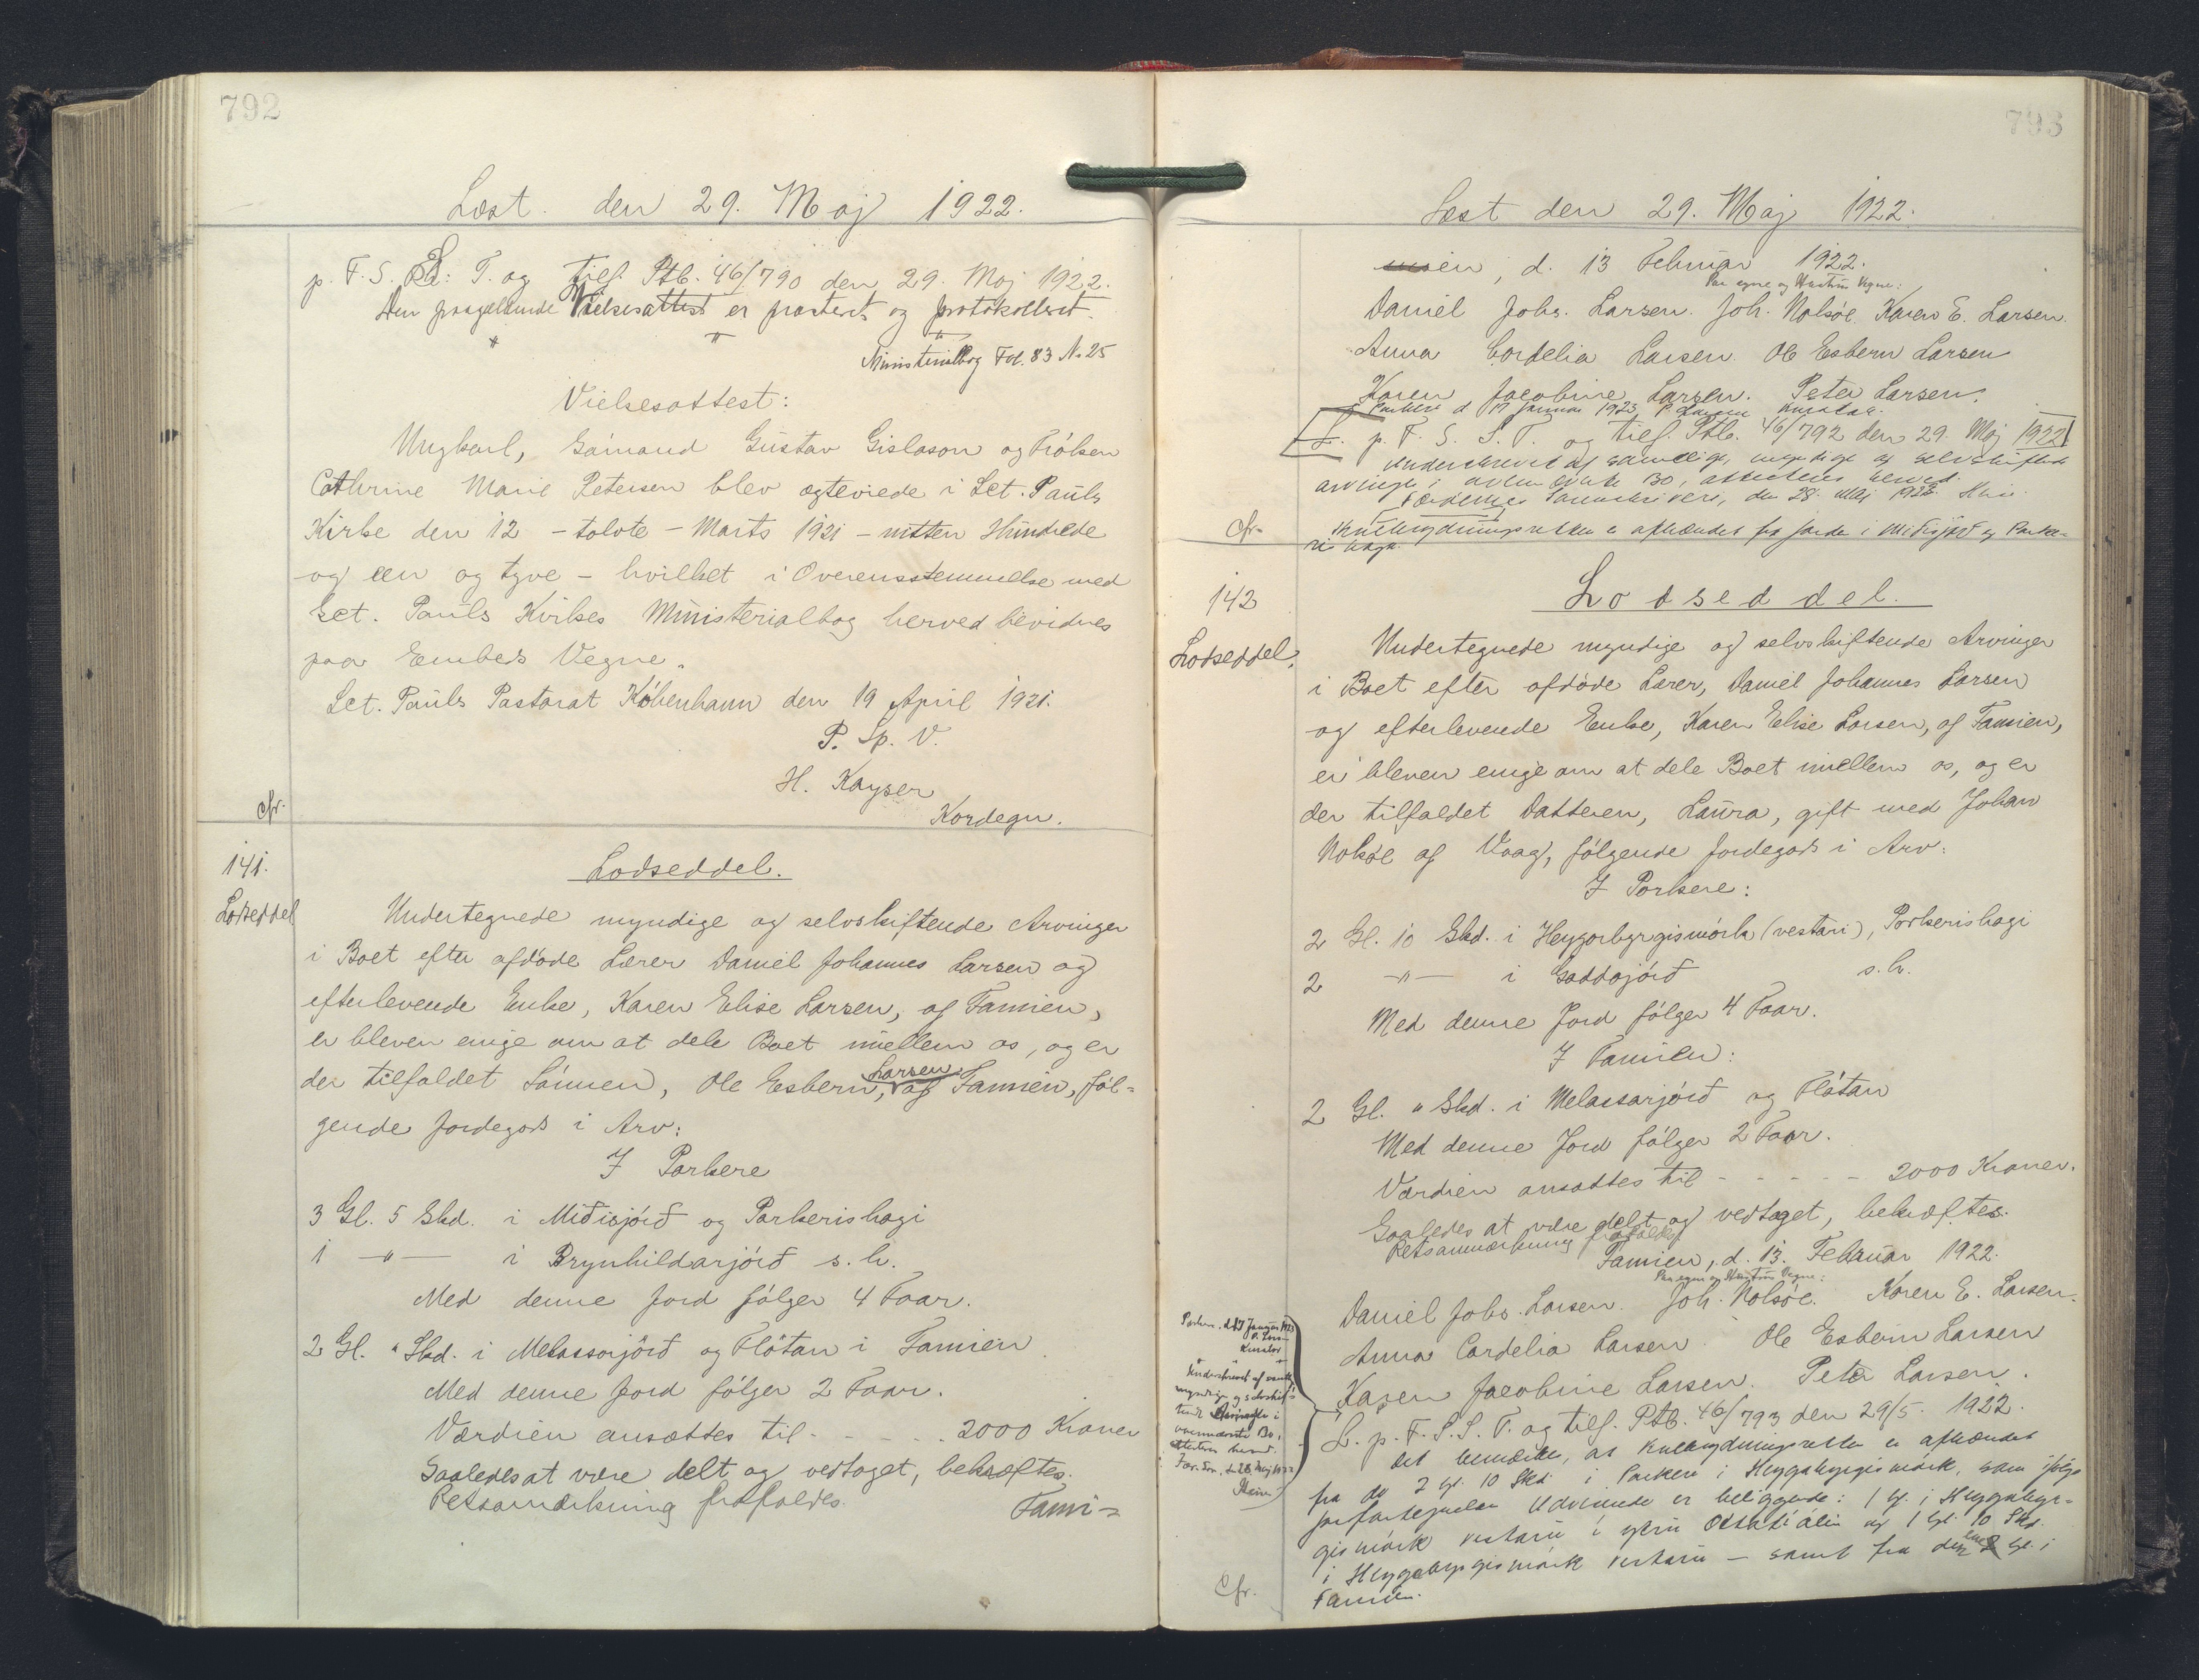 792
Læst den 29. Maj 1922.
p. F. S. S. T. og tilf. Ptb. 46/790 den 29. Maj 1922.
Den paagældende Vielsesattest er præsteret og protokolleret.
Ministerialbog Fol. 83 No 25
Vielsesattest:
Ungkarl, Sømand Gustav Gislason og Frøken
Cathrine Marie Petersen blev ægteviede i Sct. Pauls
Kirke den 12 - tolvte - Marts 1921 - nitten Hundrede
og een og tyve - hvilket i Overensstemmelse med
Sct. Pauls Kirkes Ministerialbog herved bevidnes
paa Embeds Vegne.
Sct. Pauls Pastorat København den 19 April 1921.
P. Sp. V.
H. Kayser
Kordegn.
cfr.
141.
Lodseddel
Lodseddel.
Undertegnede myndige og selvskiftende Arvinger
i Boet efter afdøde Lærer Daniel Johannes Larsen og
efterlevende Enke, Karen Elise Larsen, af Famien,
er bleven enige om at dele Boet imellem os, og er
der tilfaldet Sønnen, Ole Esbern Larsen, af Famien, føl=
gende Jordegods i Arv:
I Porkere
3 Gl. 5 Skd. i Miðisjørð og Porkerishagi
1 -"- i Brynhildarjørð s. h.
Med denne Jord følger 4 Faar.
2 Gl. " Skd. i Melassarjørð og Fløtan i Famien
Med denne Jord følger 2 Faar.
Værdien ansættes til - - - - - 2000 Kroner
Saaledes at være delt og vedtaget, bekræftes.
Retsanmærkning frafaldes.
Fami=
793
Læst den 29. Maj 1922.
en, d. 13 Februar 1922.
Paa egne og Hustrus Vegne:
Daniel Johs. Larsen. Joh. Nolsøe. Karen E. Larsen.
Anna Cordelia Larsen Ole Esbern Larsen
Karen Jacobine Larsen. Peter Larsen.
Porkere d 17 Januar 1923 P. Larsen Kurator.
L. p. F. S. S. T. og tilf. Ptb. 46/792 den 29. Maj 1922
Underskrevet af samtlige, myndige og selvskiftende
Arvinge i ovennævnte Bo, attesteres herved.
Færøernes Sorenskriveri, den 28. Maj 1922.
cfr.
Kulbrydningsretten er afhændet fra Jorden i Miðisjørð og Porke-
rishaga.
142
Lodseddel.
Lodseddel.
Undertegnede myndige og selvskiftende Arvinger
i Boet efter afdøde Lærer, Daniel Johannes Larsen
og efterlevende Enke, Karen Elise Larsen, af Famien,
er bleven enige om at dele Boet imellem os, og er
der tilfaldet Datteren, Laura, gift med Johan
Nolsøe af Vaag, følgende Jordegods i Arv:
I Porkere:
2 Gl. 10 Skd. i Heygorbyrgismørk (vestari), Porkerishagi
2 -"- i Gaddajørð s. h.
Med denne Jord følger 4 Faar.
I Famien:
2 Gl. " Skd. i Melassarjørð og Fløtan
Med denne Jord følger 2 Faar.
Værdien ansættes til - - - - - 2000 Kroner.
Saaledes at være delt og vedtaget, bekræftes.
Retsanmærkning frafaldes
Famien, d. 13. Februar 1922.
Paa egne og Hustrus Vegne:
Daniel Johs. Larsen. Joh. Nolsøe. Karen E. Larsen.
Anna Cordelia Larsen. Ole Esbern Larsen
Karen Jacobine Larsen. Peter Larsen.
Porkere, d. 17 Januar 1923
P. Larsen
Kurator
Underskrevet af samtl.
myndige og selvskif-
tende Arvinge i
ovennævnte Bo,
attesteres herved.
Fær. Sor., d. 28. Maj 1922
L. p. F. S. S. T. og tilf. Ptb. 46/793 den 29/5. 1922.
Det bemærkes, at Kulbrydningsretten er afhændet
fra de 2 Gl. 10 Skd. i Porkere i Heygabyrgismørk, som ifølge
Udvisende er beliggende: 1 Gl. i Heygabyr=
gismørk vestaru i og 1 Gl. 10 Skd.
i Heygabyrgismørk vestaru - samt fra Gl. i
Famien.
Cfr.